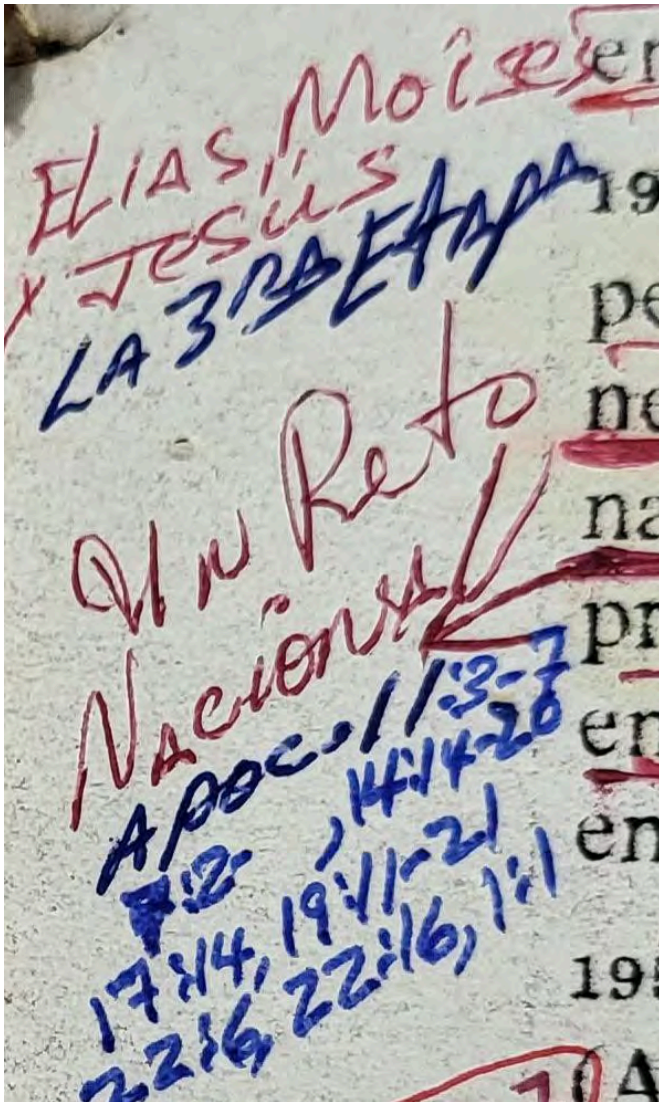 ELIAS, Moises
x Jesús
LA 3RA ETAPA
UN Reto
Nacional
APOC. 11:3-7
7:2- , 14:14-20
17:14, 19:11-21
22:6, 22:16, 1:1
en
19
pe
ne
na
pr
en
en
195
(A